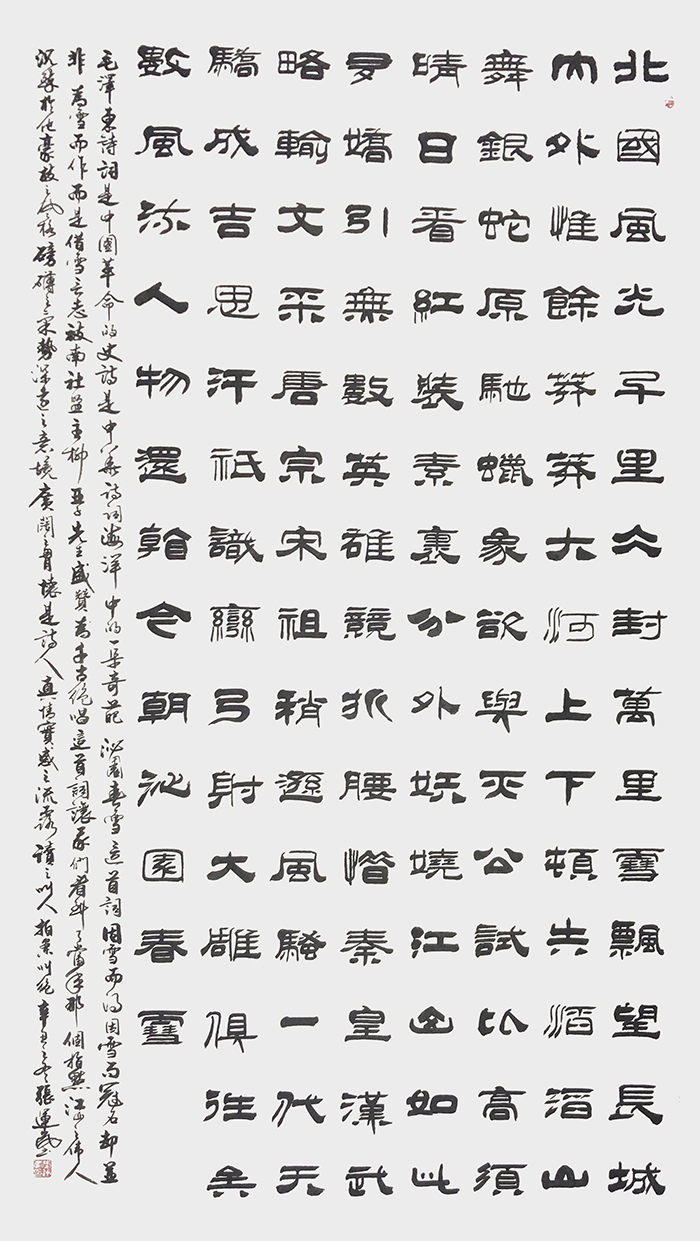 北國風光千里冰封萬里雪飄望長城
內外惟餘莽莽大河上下頓失滔滔山
舞銀蛇原馳蠟象欲與天公試比高須
晴日看紅裝素裹分外妖嬈江山如此
多嬌引無數英雄競折腰惜秦皇漢武
略輸文采唐宗宋祖稍遜風騷一代天
驕成吉思汗祇識彎弓射大雕俱往矣
數風流人物還看今朝沁園春雪
毛澤東詩詞是中國革命的史詩是中華詩詞海洋中的一朵奇葩沁園春雪這首詞因雪而得因雪而冠名却並
非為雪而作而是借雪言志被南社盟主柳亞子先生盛贊為千古絕唱這首詞讓我們看到了當年那個指點江山之偉人
沉醉於他豪放之風格磅礴之氣勢深遠之意境廣闊之胸懷是詩人真情實感之流露讀之叫人拍案叫絕辛丑之冬張運